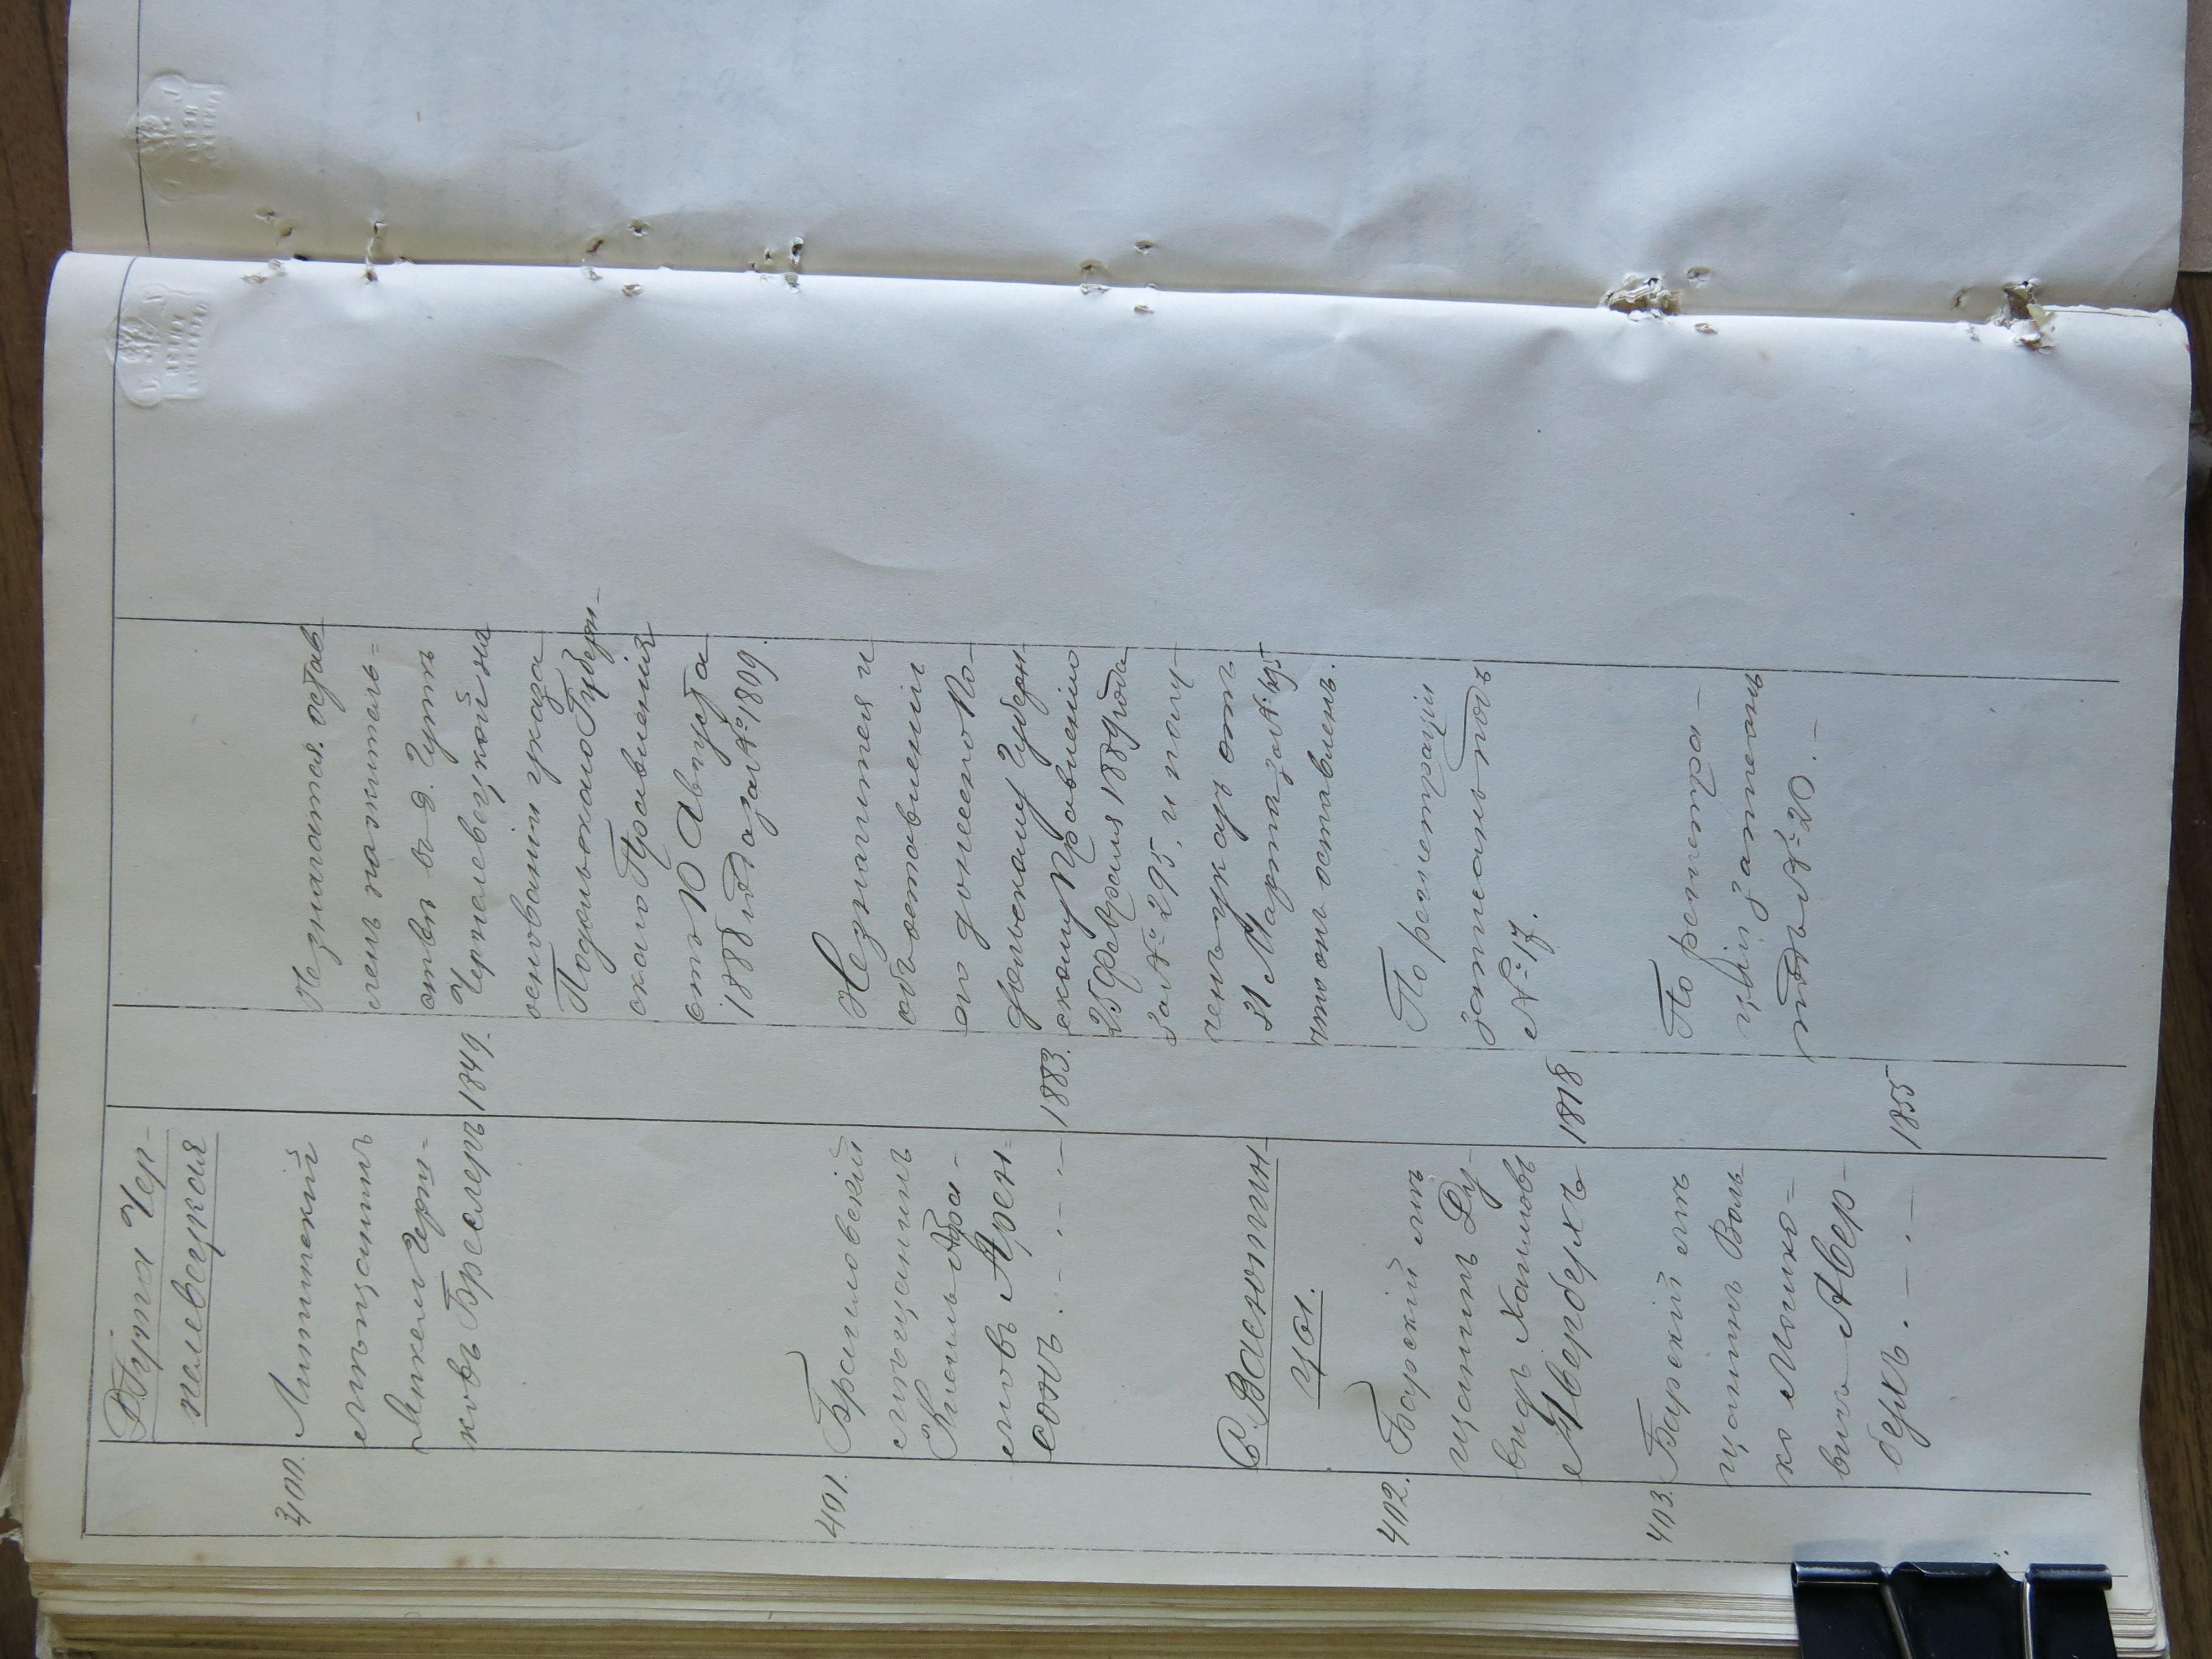 Д. Гута Чер-
нелевецкая
400.
Литинский
мѣщанинъ
Янкель Герш-
ковъ Бреслеръ
1849.
Незначится. остав
ленъ на житель=
ствѣ въ д. Гутѣ
Чернелевецкой на
основаніи указа
Подольскаго Губерн-
скаго Правленія
отъ 10 Августа
1888 года за № 1809.
401.
Браиловскій
мѣщанинъ
Хмаль Абра-
мовъ Арен=
сонъ . — . — . —
1883.
Незначится и
объ оставленіи
его донесено По-
дольскому Губерн
скому Правленію
25 февраля 1889 года
за № 295, и полу-
ченъ указъ отъ
31 Марта за № 495
что онъ оставленъ.
С. Васютин-
цы.
402.
Барскій мѣ
щанинъ Ду-
видъ Хаимовъ
Авербухъ
1818
По регистраціи
записанъ подъ
№ 17.
403.
Барскій мѣ
щанинъ Воль
ко Мошко=
вичъ Авер-
бухъ. — . —
1855
По регистра-
ціи записанъ
подъ № 20. —